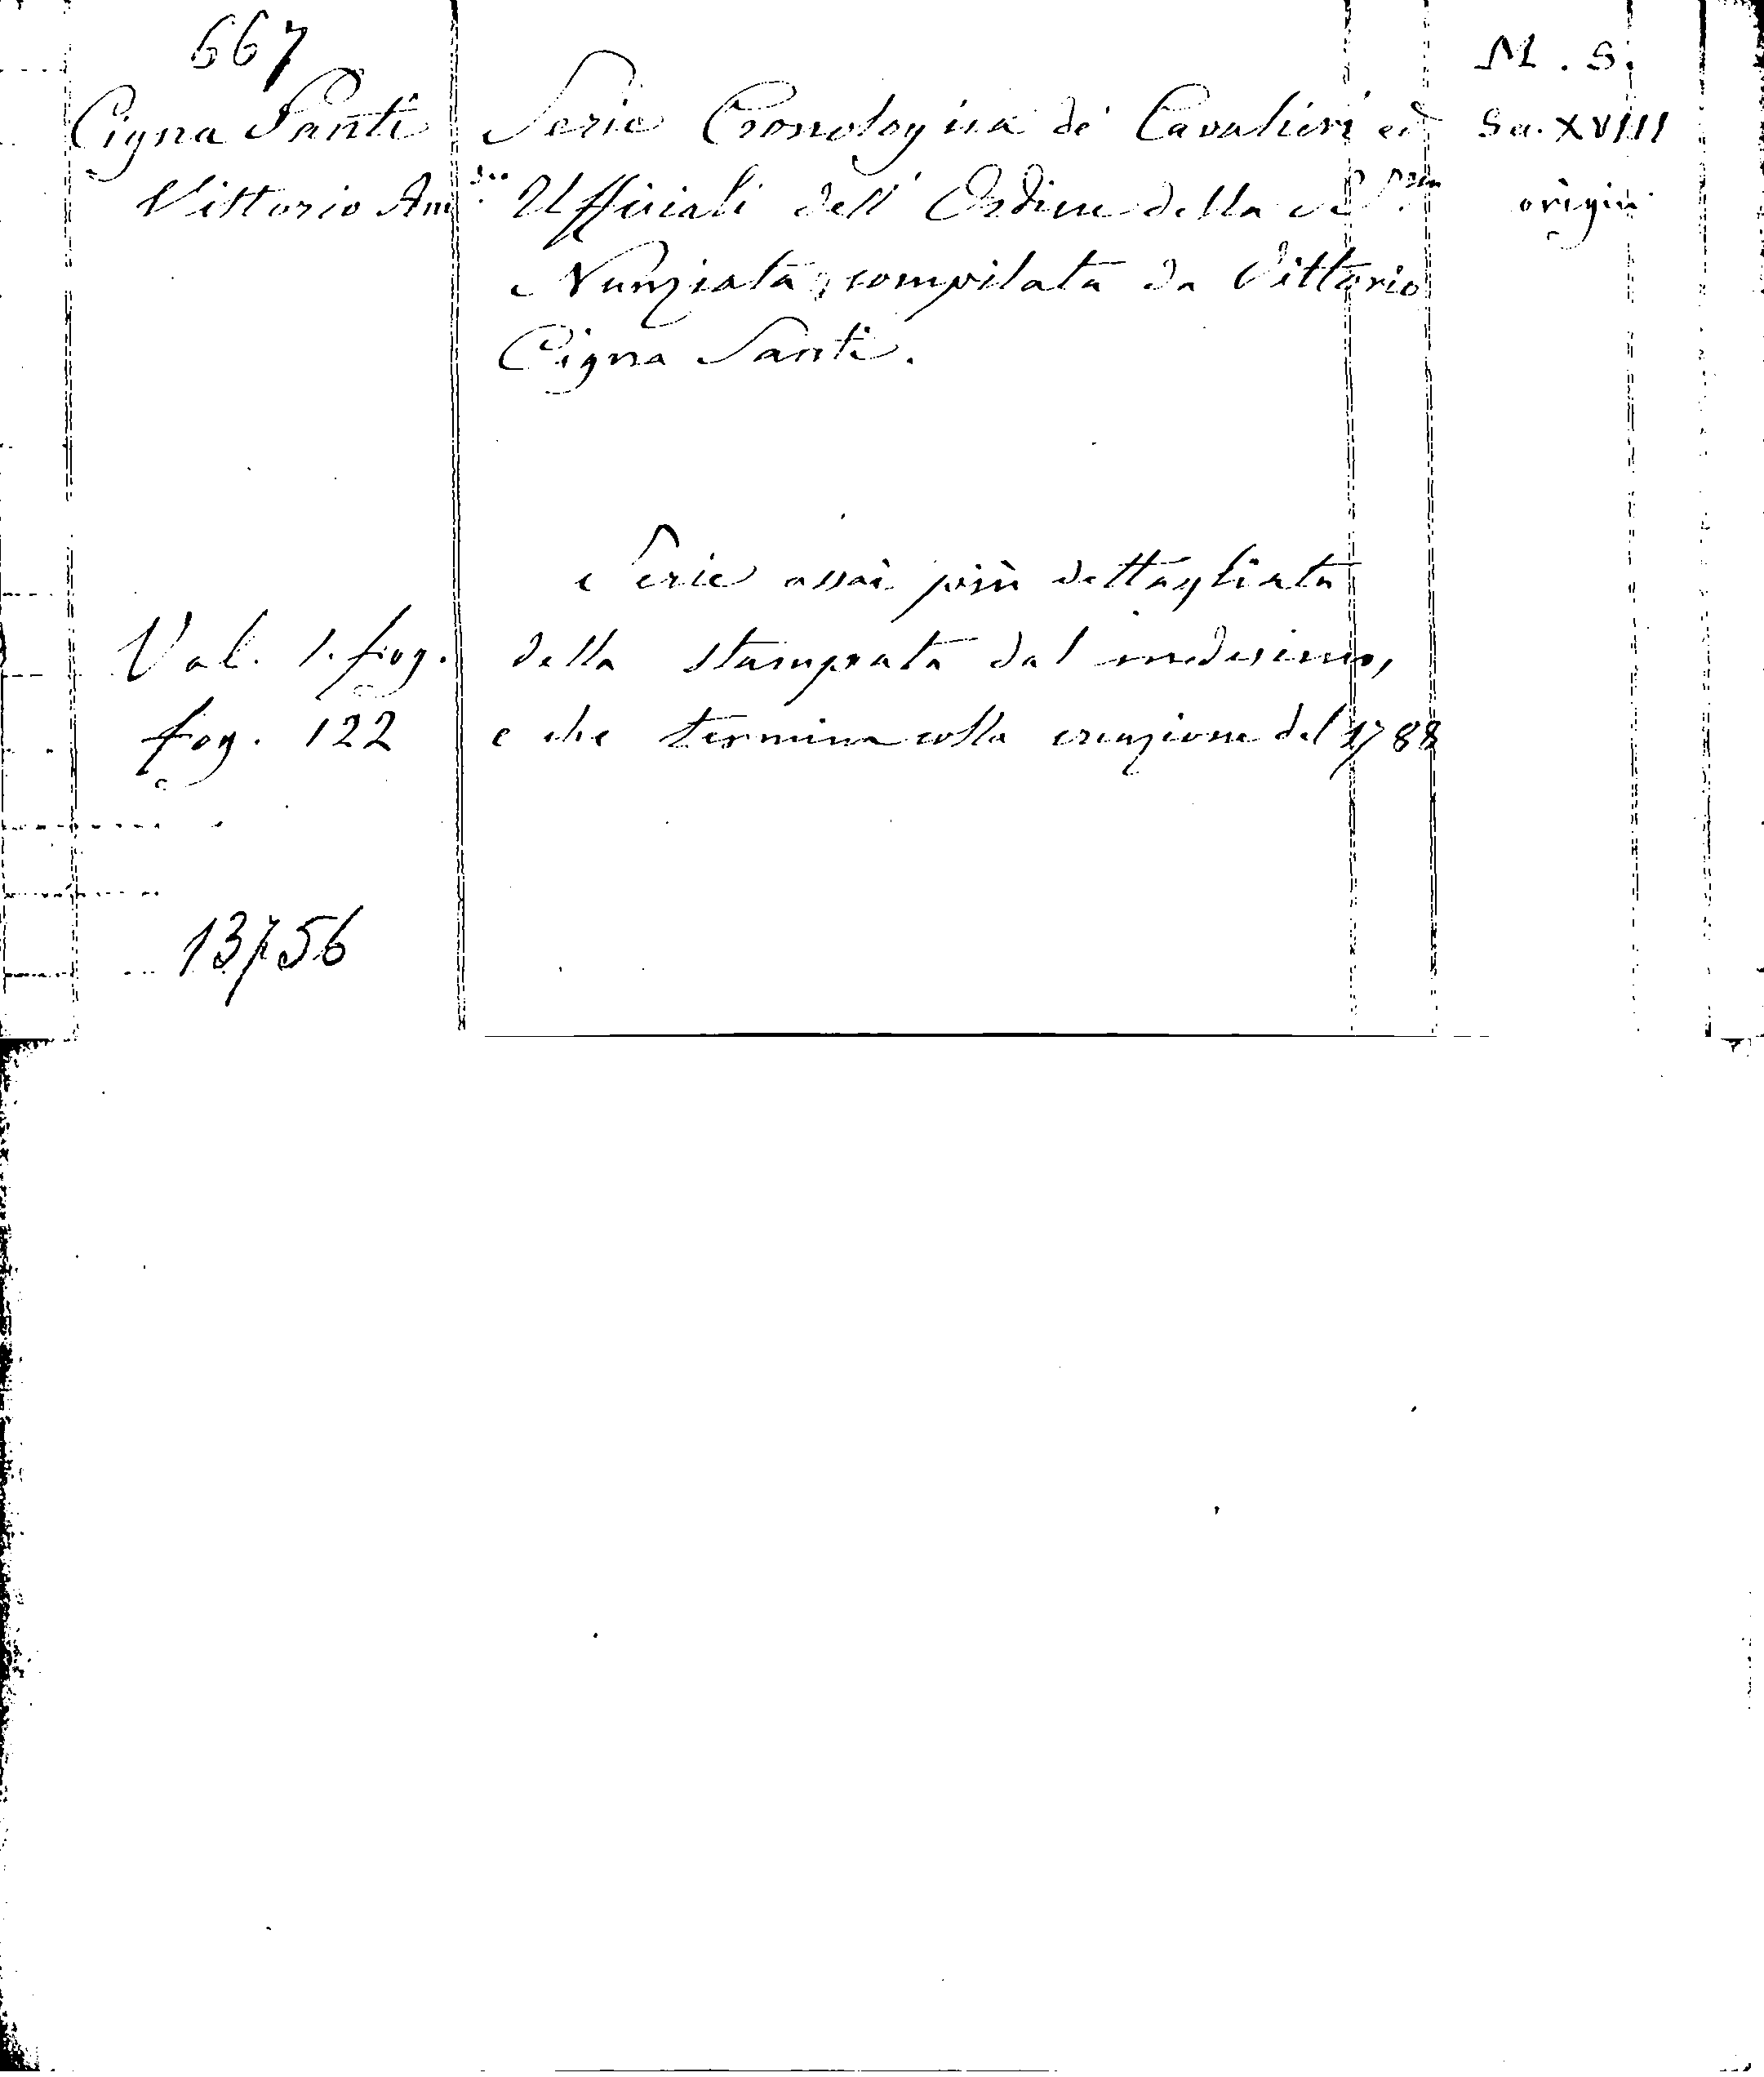 667
M. S.
Cigna Santi
Serie Cronologica de' Cavalieri ed
Sec. XVIII
Vittorio Am.deo
Ufficiali dell' Ordine della SS.ma
origin.
Nunziata, compilata da Vittorio
Cigna Santi.
Serie assai più dettagliata
Vol. 1. fog.
della stampata dal medesimo,
fog. 122
e che termina colla creazione del 1788
13756